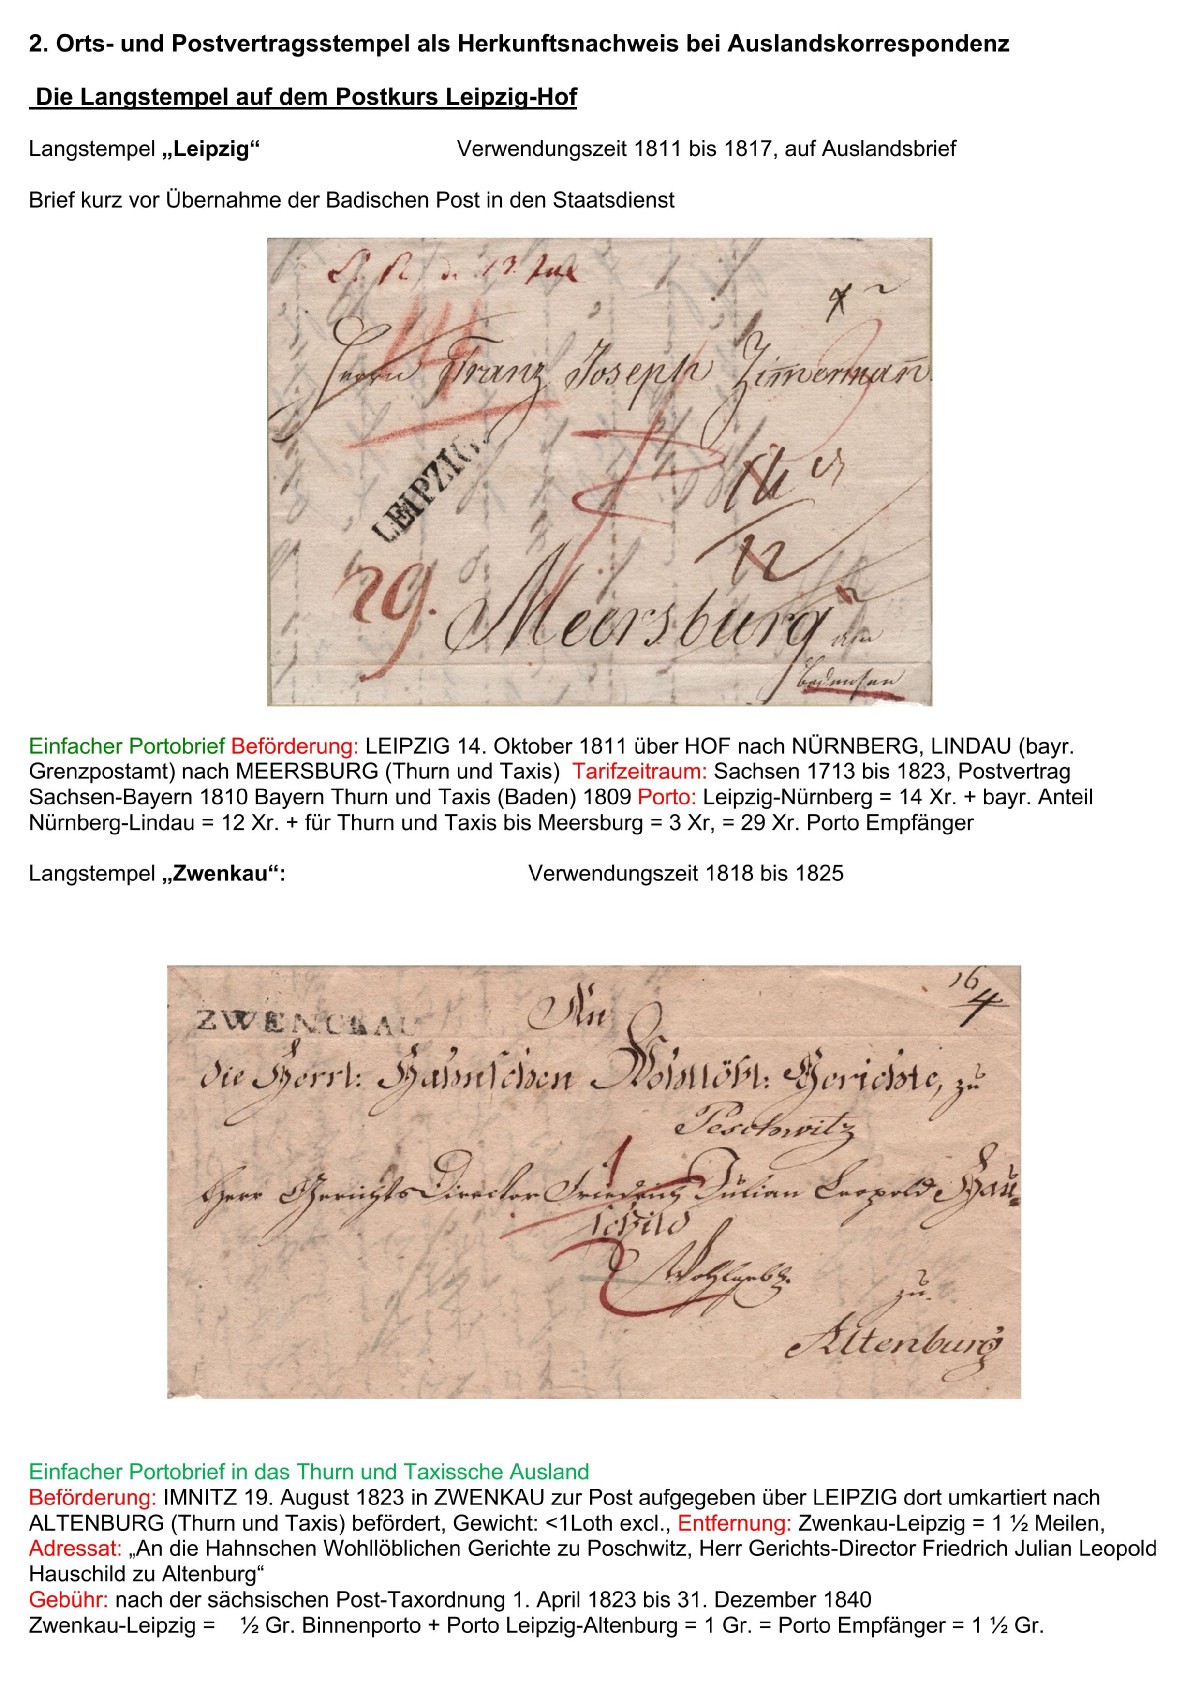 2. Orts- und Postvertragsstempel als Herkunftsnachweis bei Auslandskorrespondenz
Die Langstempel auf dem Postkurs Leipzig-Hof
Langstempel „Leipzig“ Verwendungszeit 1811 bis 1817, auf Auslandsbrief
Brief kurz vor Übernahme der Badischen Post in den Staatsdienst
14
Herrn Franz Joseph Zimermañ
LEIPZIG.
12
29.
Meersburg
Einfacher Portobrief Beförderung: LEIPZIG 14. Oktober 1811 über HOF nach NÜRNBERG, LINDAU (bayr.
Grenzpostamt) nach MEERSBURG (Thurn und Taxis) Tarifzeitraum: Sachsen 1713 bis 1823, Postvertrag
Sachsen-Bayern 1810 Bayern Thurn und Taxis (Baden) 1809 Porto: Leipzig-Nürnberg = 14 Xr. + bayr. Anteil
Nürnberg-Lindau = 12 Xr. + für Thurn und Taxis bis Meersburg = 3 Xr, = 29 Xr. Porto Empfänger
Langstempel „Zwenkau“: Verwendungszeit 1818 bis 1825
16/4
ZWENCKAU
An
die Herrl: Hahnschen Wohllöbl: Gerichte, zu
Poschwitz
Herr Gerichts Director Friedrich Julian Leopold Hau-
schild
zu
Altenburg
Einfacher Portobrief in das Thurn und Taxissche Ausland
Beförderung: IMNITZ 19. August 1823 in ZWENKAU zur Post aufgegeben über LEIPZIG dort umkartiert nach
ALTENBURG (Thurn und Taxis) befördert, Gewicht: <1Loth excl., Entfernung: Zwenkau-Leipzig = 1 ½ Meilen,
Adressat: „An die Hahnschen Wohllöblichen Gerichte zu Poschwitz, Herr Gerichts-Director Friedrich Julian Leopold
Hauschild zu Altenburg“
Gebühr: nach der sächsischen Post-Taxordnung 1. April 1823 bis 31. Dezember 1840
Zwenkau-Leipzig = ½ Gr. Binnenporto + Porto Leipzig-Altenburg = 1 Gr. = Porto Empfänger = 1 ½ Gr.